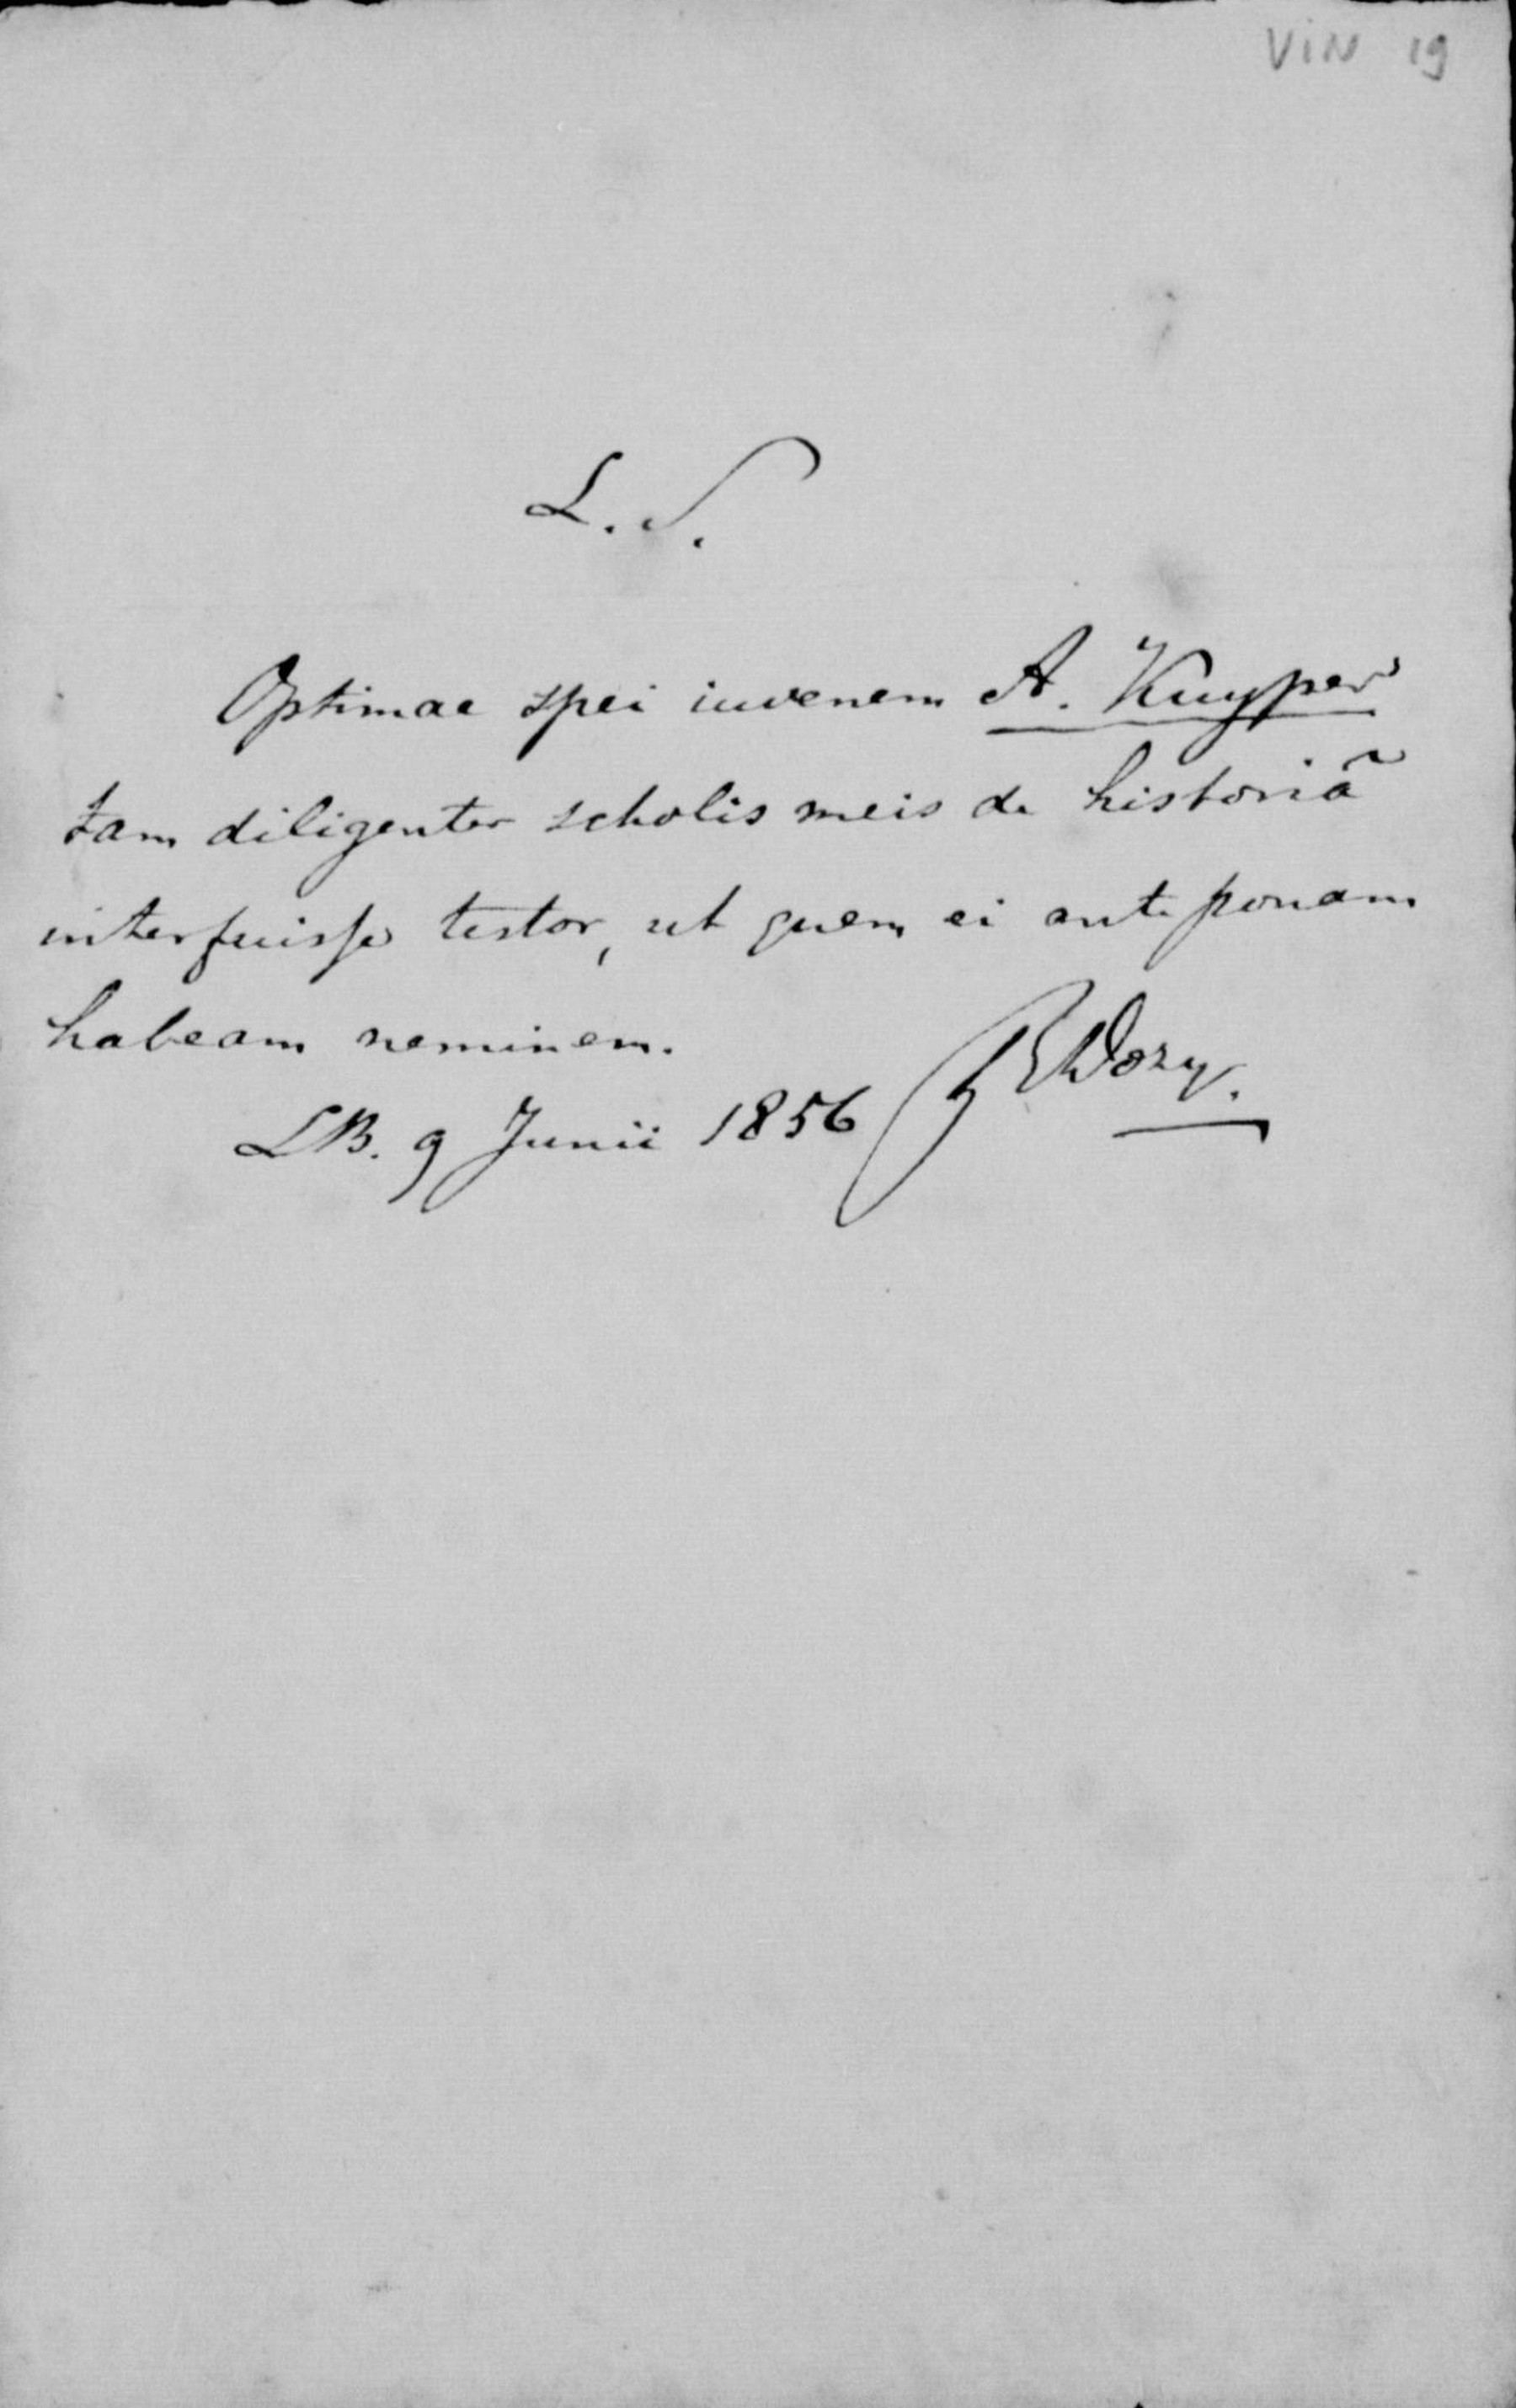 VIN 19
L. S.
Optimae spei iuvenem A. Kuyper
tam diligenter scholis meis de historiâ
interfuisse testor, ut quem ei anteponam
habeam neminem.
RDozy.
LB. 9 Junii 1856